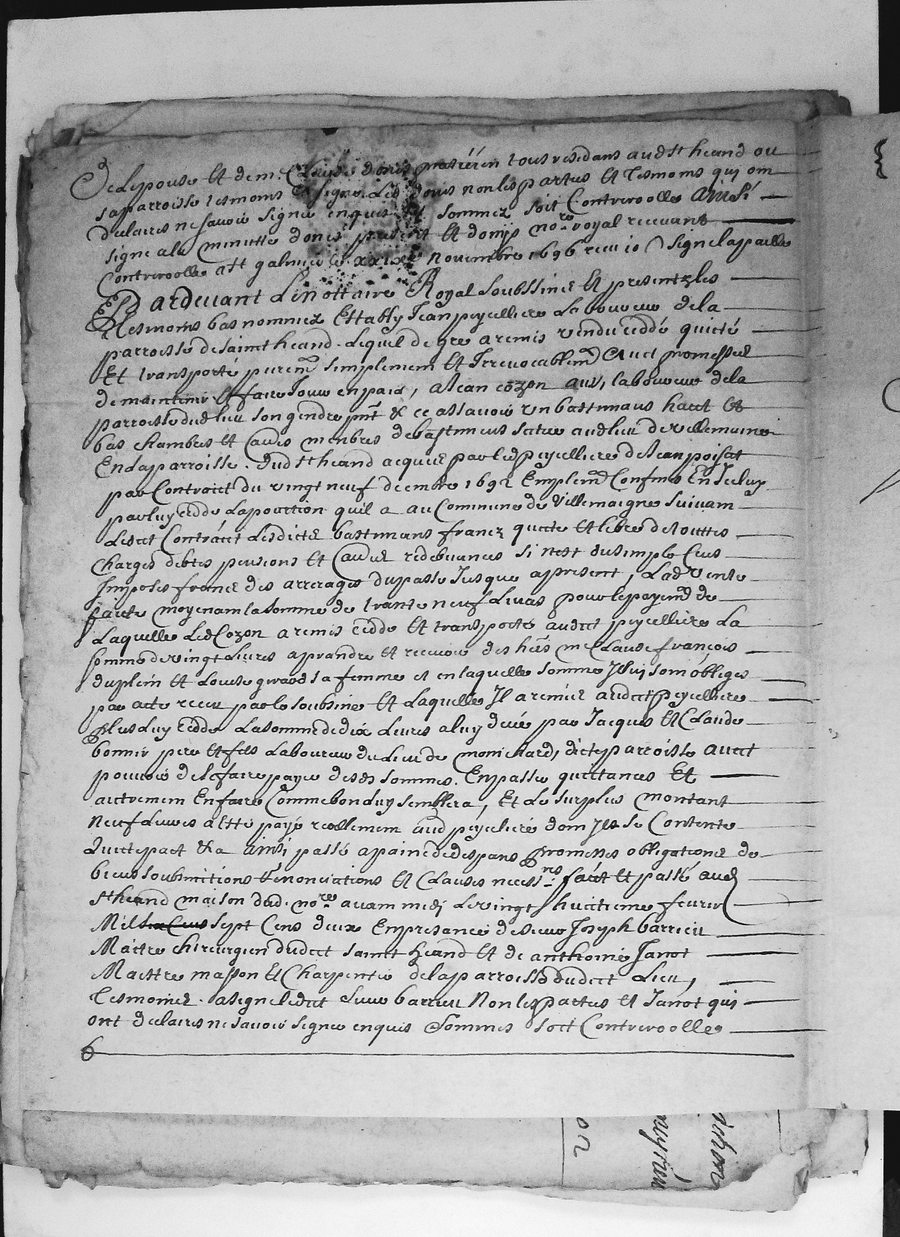 De Lepouse et de mr Claude donis pratisien tous residans aud st heand ou
sa parroisse tesmoins signe led donis non les parties et tesmoins qui on
declaires ne savoir signer enquis et sommez soit Controroolle ainsi
signe a la minutte donis present et donis nore royal recevant
Controroolle a st galmier le novembre 1696 receu 10 s signe lapaille
Pardevant Le nottaire Royal Soubssine et presentz les
Tesmoins bas nommez Estably Jean peycelliere Laboureur de la
parroisse de saint heand. Lequel de gre a remis vendu cedde quicté
Et transporte purent simplement et Irrevocablemt avec promesses
de maintenir et faire Jouir en paix, a Jean cozon aussi laboureur de la
parroisse dud lieu son gendre pnt & ce assavoir un bastimans haut et
bas chambres et Caves membres de bastimens situe aud lieu de villemaine
En la parroisse. dud st heand acquis par led peycelliere de Jean poisat
par Contract du vingt neuf decembre 1692 Emplemt Confines En Icelluy
par luy cedde la portion quil a au Commune de Villemaigne suivam
Ledict Contract Lesdictz bastimans francz quitte et libre de touttes
Charges debtes pensions et Causes redebvances si nest du simple Cens
Imposés francz des arrerages du passé Jusque apresent, Lad vente
faicte moyenam la somme de trante neuf Livres pour le payemt de
Laquelle Led Cozon a remis cedde et transporte audit peycelliere La
somme de vingt Livres a prandre et recevoir des hers mr Claude françois
duplein et Louise girard sa femme et en laquelle somme Jlz luy som obliges
par acte receu par le soubsine et Laquelle Jl a remise audit peycelliere
plus luy cedde La somme de dix Livres a luy deue par Jacques et Claude
bonnir pere et fils Laboureur du Lieu de monichard, dicte parroisse avect
pouvoir de se faire payer desd sommes. En passer quittances Et
autremem En faire Comme bon luy semblera, Et Le surplus montant
neuf Livres a esté payé reellemem aud peycelliere dom Jl se Contente
Quicte pact & a ainsi passé a paine de despans promesses obligations de
biens soubmitions renonciations et Clauses necessres faict et passé aud
st heand maison dud. nore avam midi le vingt huitieme fevrier
Mil six Cens sept Cens deux En presance de sieur Joseph barrieu
Maitre chirurgien dudict saint heand et de anthoine Janot
Maistre masson et Charpentier de la parroisse dudict Lieu,
Tesmoins. a signe ledit sieur barrieu Non les parties et Janot qui
ont declaires ne savoir signer enquis sommés soit Controroolle
6